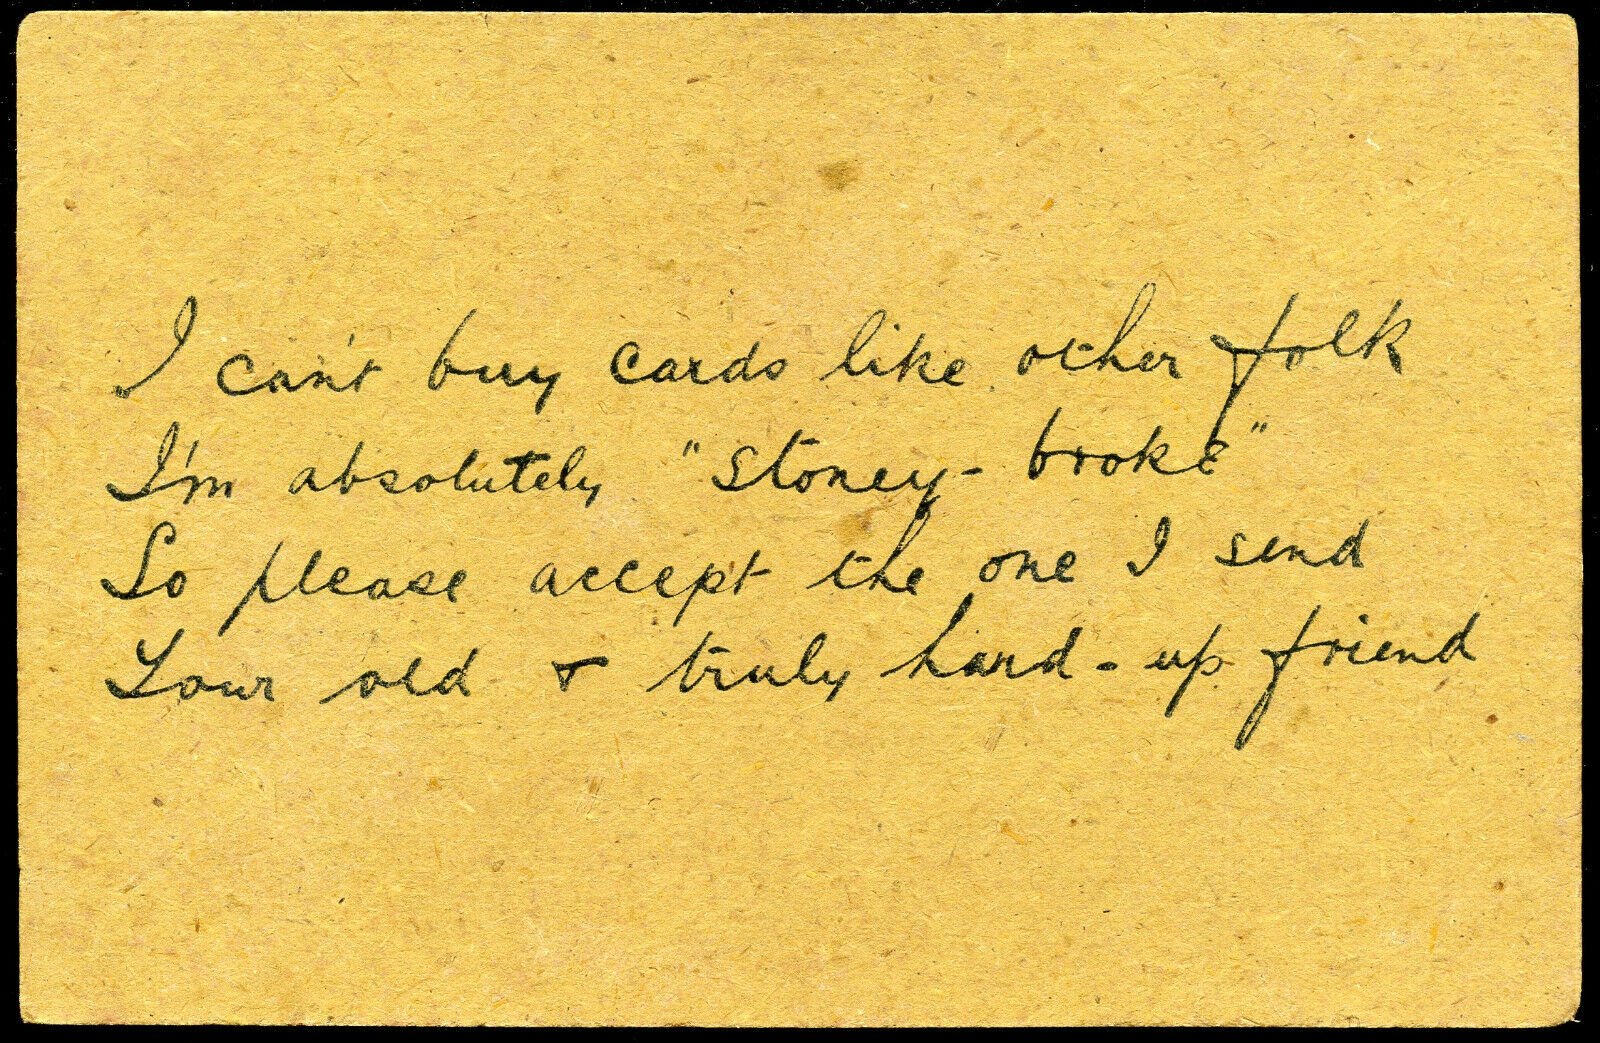 I can't buy cards like other folk
I'm absolutely "stoney-broke"
So please accept the one I send
Your old & truly hard-up friend